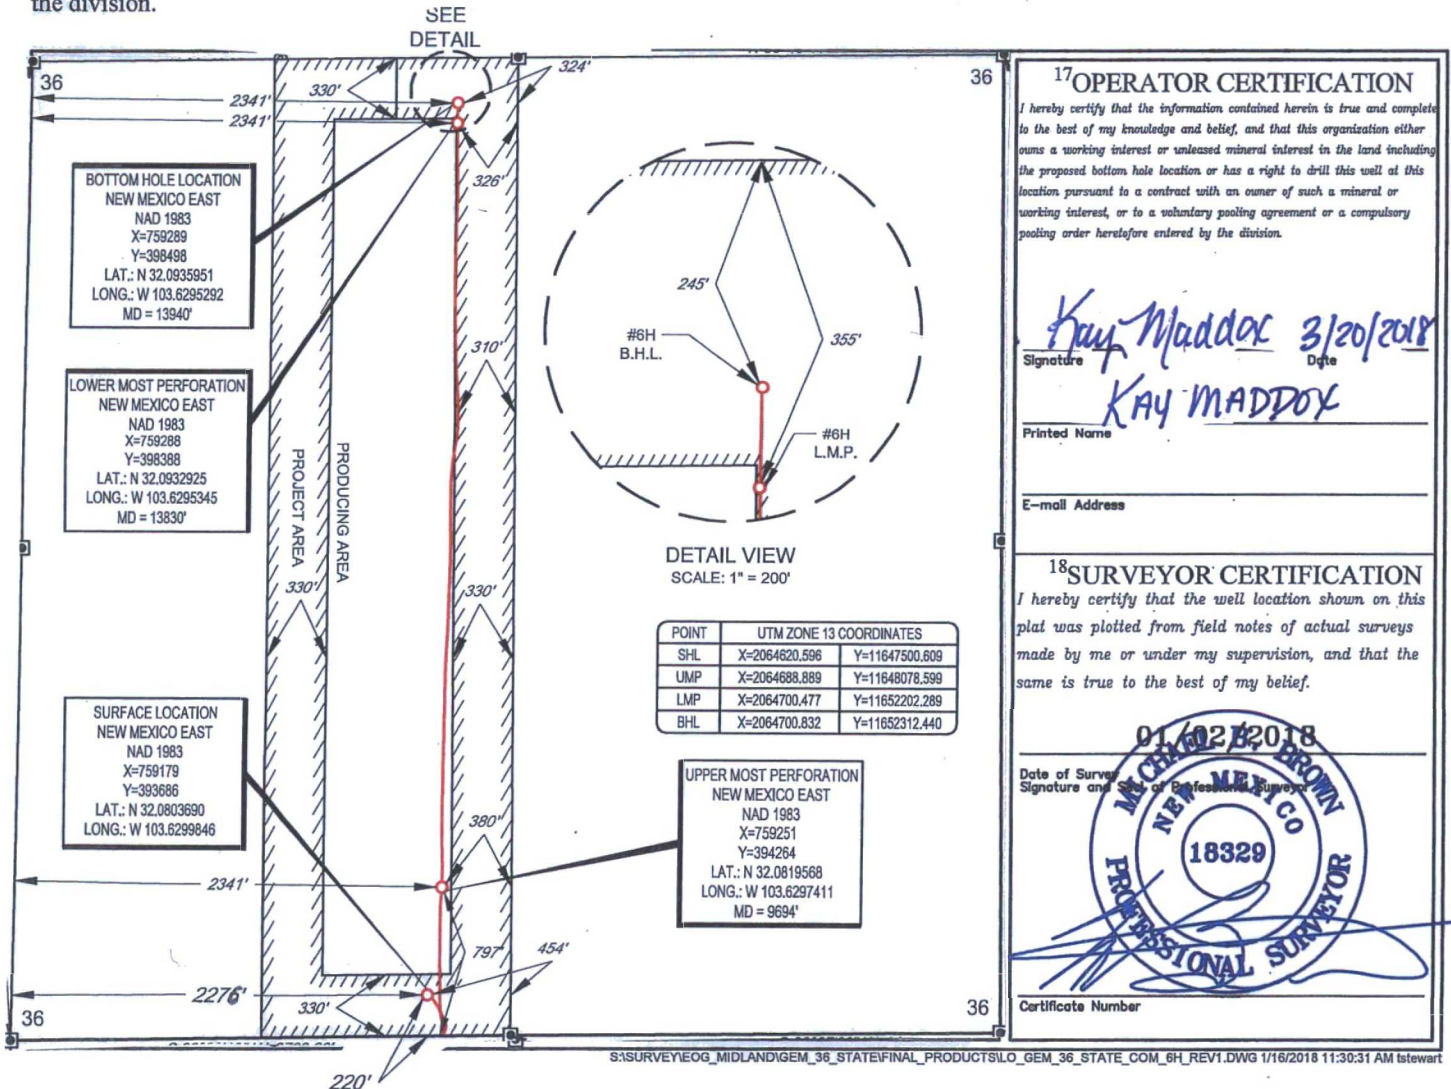 the division.
SEE
DETAIL
36
36
324'
330'
2341'
2341'
326'
BOTTOM HOLE LOCATION
NEW MEXICO EAST
NAD 1983
X=759289
Y=398498
LAT.: N 32.0935951
LONG.: W 103.6295292
MD = 13940'
LOWER MOST PERFORATION
NEW MEXICO EAST
NAD 1983
X=759288
Y=398388
LAT.: N 32.0932925
LONG.: W 103.6295345
MD = 13830'
310'
PROJECT AREA
PRODUCING AREA
330'
330'
245'
#6H
B.H.L.
355'
#6H
L.M.P.
DETAIL VIEW
SCALE: 1" = 200'
POINT UTM ZONE 13 COORDINATES
SHL X=2064620.596 Y=11647500.609
UMP X=2064688.889 Y=11648078.599
LMP X=2064700.477 Y=11652202.289
BHL X=2064700.832 Y=11652312.440
SURFACE LOCATION
NEW MEXICO EAST
NAD 1983
X=759179
Y=393686
LAT.: N 32.0803690
LONG.: W 103.6299846
UPPER MOST PERFORATION
NEW MEXICO EAST
NAD 1983
X=759251
Y=394264
LAT.: N 32.0819568
LONG.: W 103.6297411
MD = 9694'
380'
2341'
797'
454'
2276'
330'
36
36
220'
17OPERATOR CERTIFICATION
I hereby certify that the information contained herein is true and complete
to the best of my knowledge and belief, and that this organization either
owns a working interest or unleased mineral interest in the land including
the proposed bottom hole location or has a right to drill this well at this
location pursuant to a contract with an owner of such a mineral or
working interest, or to a voluntary pooling agreement or a compulsory
pooling order heretofore entered by the division.
Kay Maddox 3/20/2018
Signature Date
KAY MADDOX
Printed Name
E-mail Address
18SURVEYOR CERTIFICATION
I hereby certify that the well location shown on this
plat was plotted from field notes of actual surveys
made by me or under my supervision, and that the
same is true to the best of my belief.
01/02/2018
Date of Survey
Signature and Seal of Professional Surveyor
MICHAEL B. BROWN
NEW MEXICO
18329
PROFESSIONAL SURVEYOR
Certificate Number
S:\SURVEY\EOG_MIDLAND\GEM_36_STATE\FINAL_PRODUCTS\LO_GEM_36_STATE_COM_6H_REV1.DWG 1/16/2018 11:30:31 AM tstewart